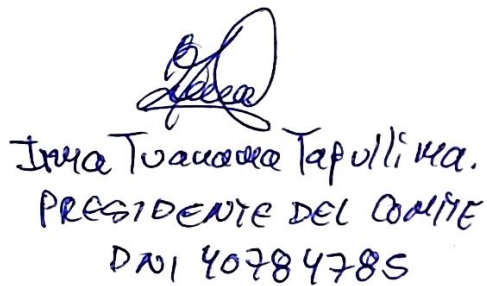 Irma Tuanama Tapullima.
PRESIDENTE DEL COMITE
DNI 40784785